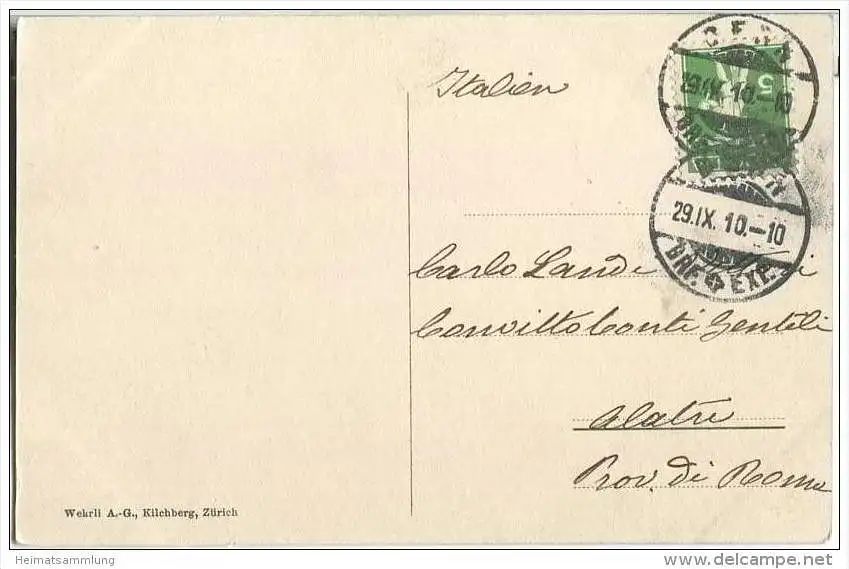 Italien
5
29.IX.10.-10
29.IX.10.-10
BRF. EXP.
Carlo Lande
Convitto Conti Gentili
Alatri
Prov. di Roma
Wehrli A.-G., Kilchberg, Zürich
Heimatsammlung
www.delcampe.net